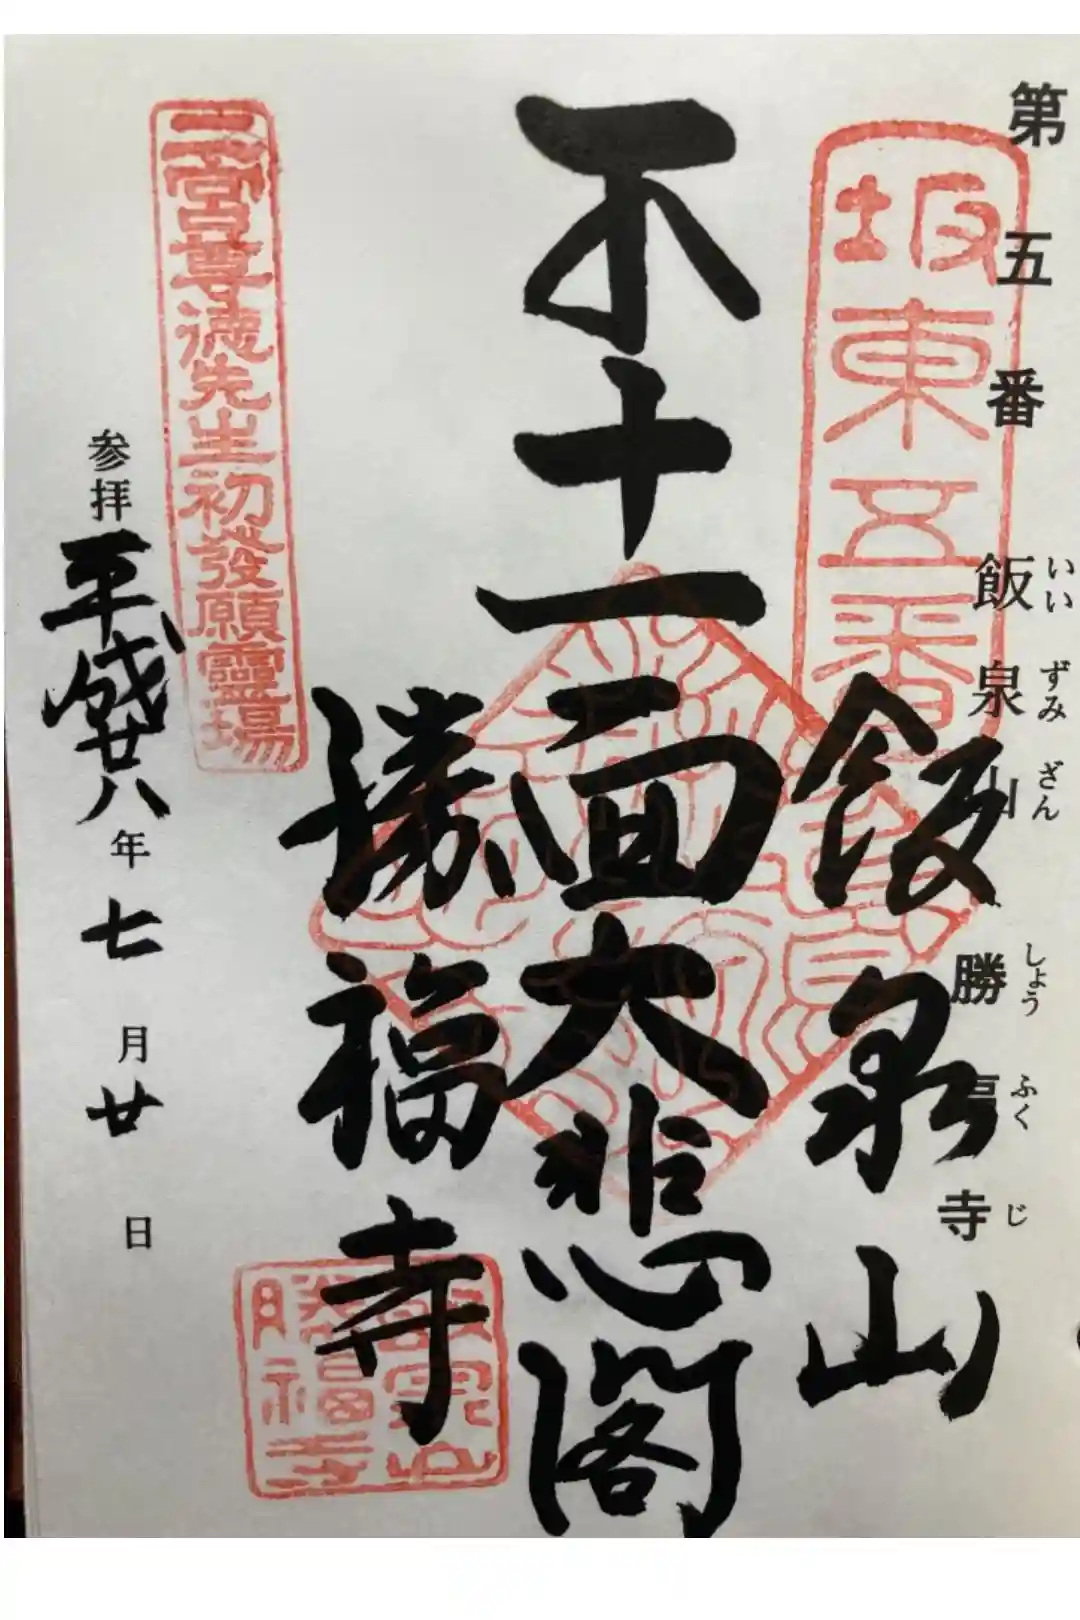 第五番
飯泉山
いいずみざん
勝福寺
しょうふくじ
坂東五番
飯泉山
不十一面大悲閣
勝福寺
飯泉山
勝福寺
二宮尊徳先生初發願靈場
参拝
平成廿八年七月廿日